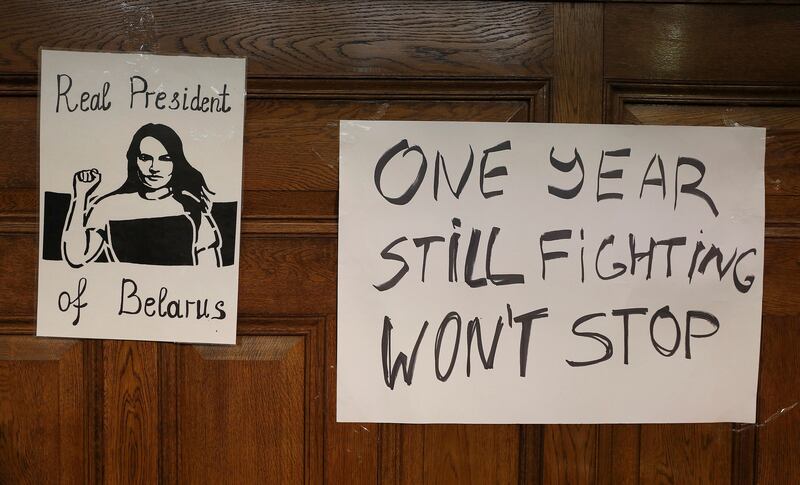 Real President
of Belarus
ONE YEAR
STiLL FiGHTiNG
WON'T STOP